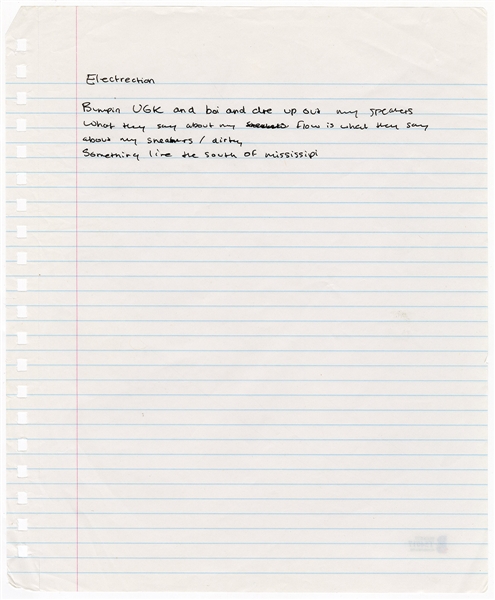 Electrection
Bumpin UGK and boi and dre up out my speakers
What they say about my sneakers flow is what they say
about my sneakers / dirty
Something like the south of mississipi